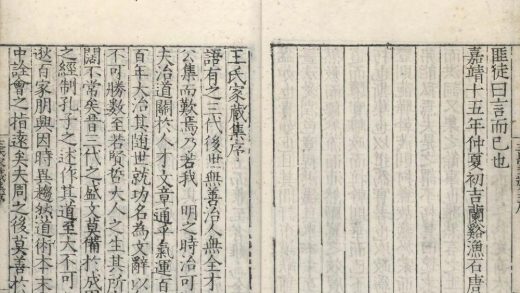 匪徒曰言而已也
嘉靖十五年仲夏初吉蘭谿漁石唐
王氏家藏集序
語有之三代後世無善治人無全才
公集而歎焉乃若我 明之時治可
大治道關於人才文章通乎氣運百
百年大治其随世就功名為文辭以
不可勝數至若賢哲大人之生其所
闊不常矣昔三代之盛文莫備於成周
之經制孔子之述作其道至大不可
敚百家朋興因時異趨然道術本末
中詮會之指遠矣夫周之後莫善於